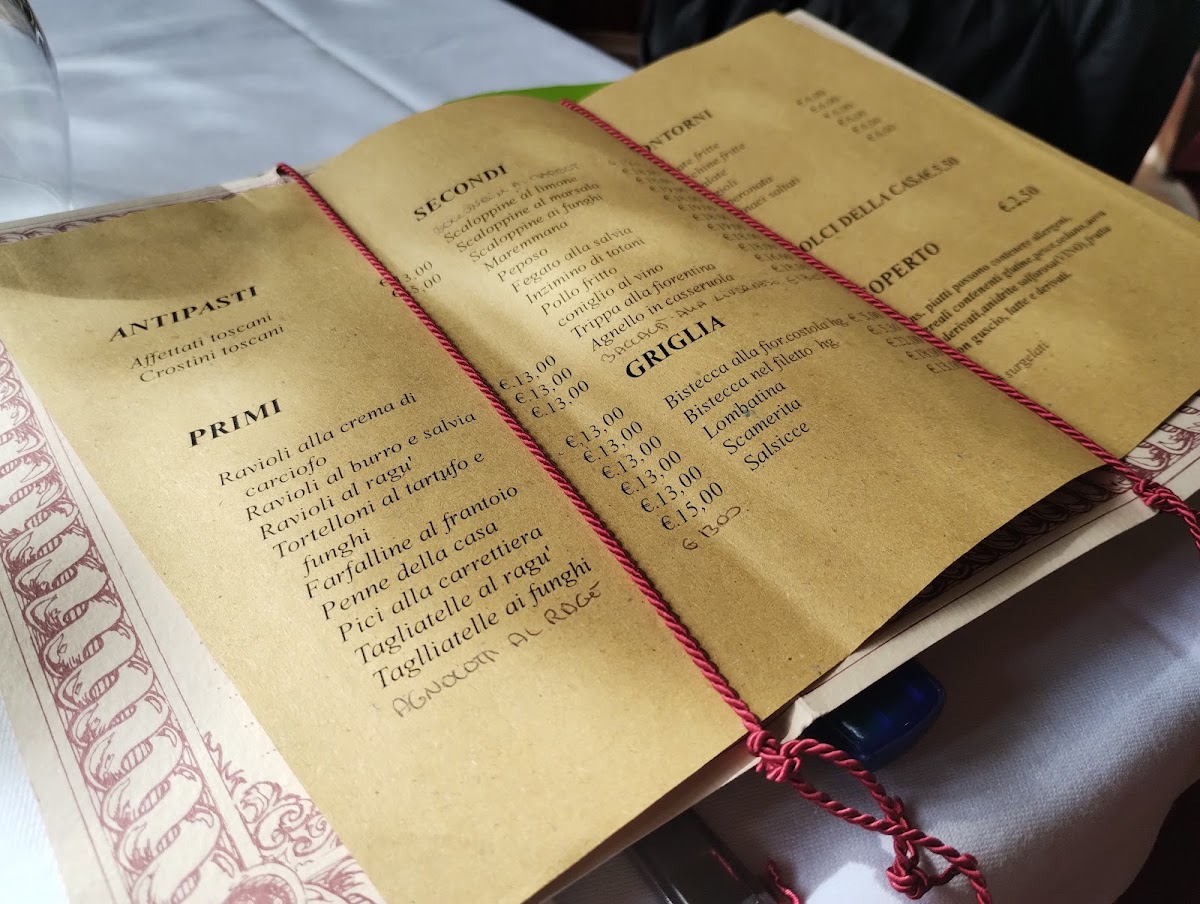 ANTIPASTI
Affettati toscani
Crostini toscani
PRIMI
Ravioli alla crema di
carciofo
Ravioli al burro e salvia
Ravioli al ragu'
Tortelloni al tartufo e
funghi
Farfalline al frantoio
Penne della casa
Pici alla carrettiera
Tagliatelle al ragu'
Taglliatelle ai funghi
AGNOLOTTI AL RAGÙ
€.13,00
€.13,00
€.13,00
€.13,00
€.13,00
€.13,00
€.13,00
€.13,00
€.15,00
SECONDI
Scaloppine al limone
Scaloppine al marsala
Scaloppine ai funghi
Maremmana
Peposo
Fegato alla salvia
Inzimino di totani
Pollo fritto
coniglio al vino
Trippa alla fiorentina
Agnello in casseruola
BACCALÀ ALLA LIVORNESE
GRIGLIA
Bistecca alla fior.costola hg
Bistecca nel filetto hg.
Lombatina
Scamerita
Salsicce
ONTORNI
€ 6,00
€ 6,00
€ 6,00
€ 6,00
fritte
fritte
saltati
OLCI DELLA CASA€5.50
OPERTO
€2,50
piatti possono contenere allergeni,
contenenti glutine,pesce,sedano,uova
derivati,anidride solforosa(VINO),frutta
guscio, latte e derivati.
surgelati